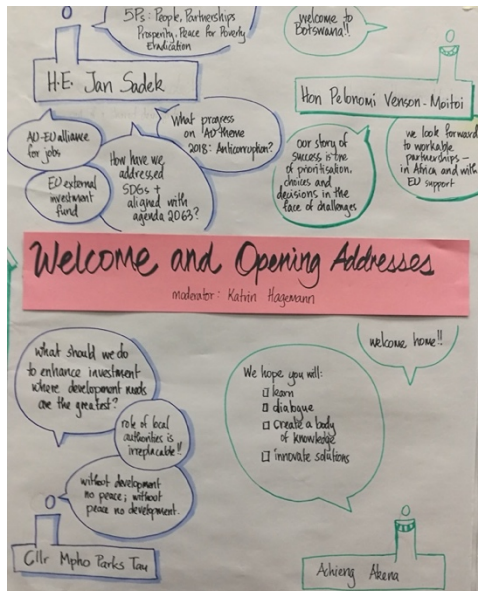 5Ps: People, Partnerships
Prosperity, Peace for Poverty
Eradication
H.E. Jan Sadek
AU-EU alliance
for jobs
EU external
investment
fund
How have we
addressed
SDGs +
aligned with
agenda 2063?
What progress
on AU theme
2018: Anticorruption?
welcome to
Botswana!!
Hon Pelonomi Venson-Moitoi
our story of
success is one
of prioritisation,
choices and
decisions in the
face of challenges
we look forward
to workable
partnerships –
in Africa and with
EU support
Welcome and Opening Addresses
moderator: Katrin Hagemann
what should we do
to enhance investment
where development needs
are the greatest?
role of local
authorities is
irreplacable!!
without development
no peace; without
peace no development.
Cllr Mpho Parks Tau
welcome home!!
We hope you will:
learn
dialogue
create a body
of knowledge
innovate solutions
Achieng Akena